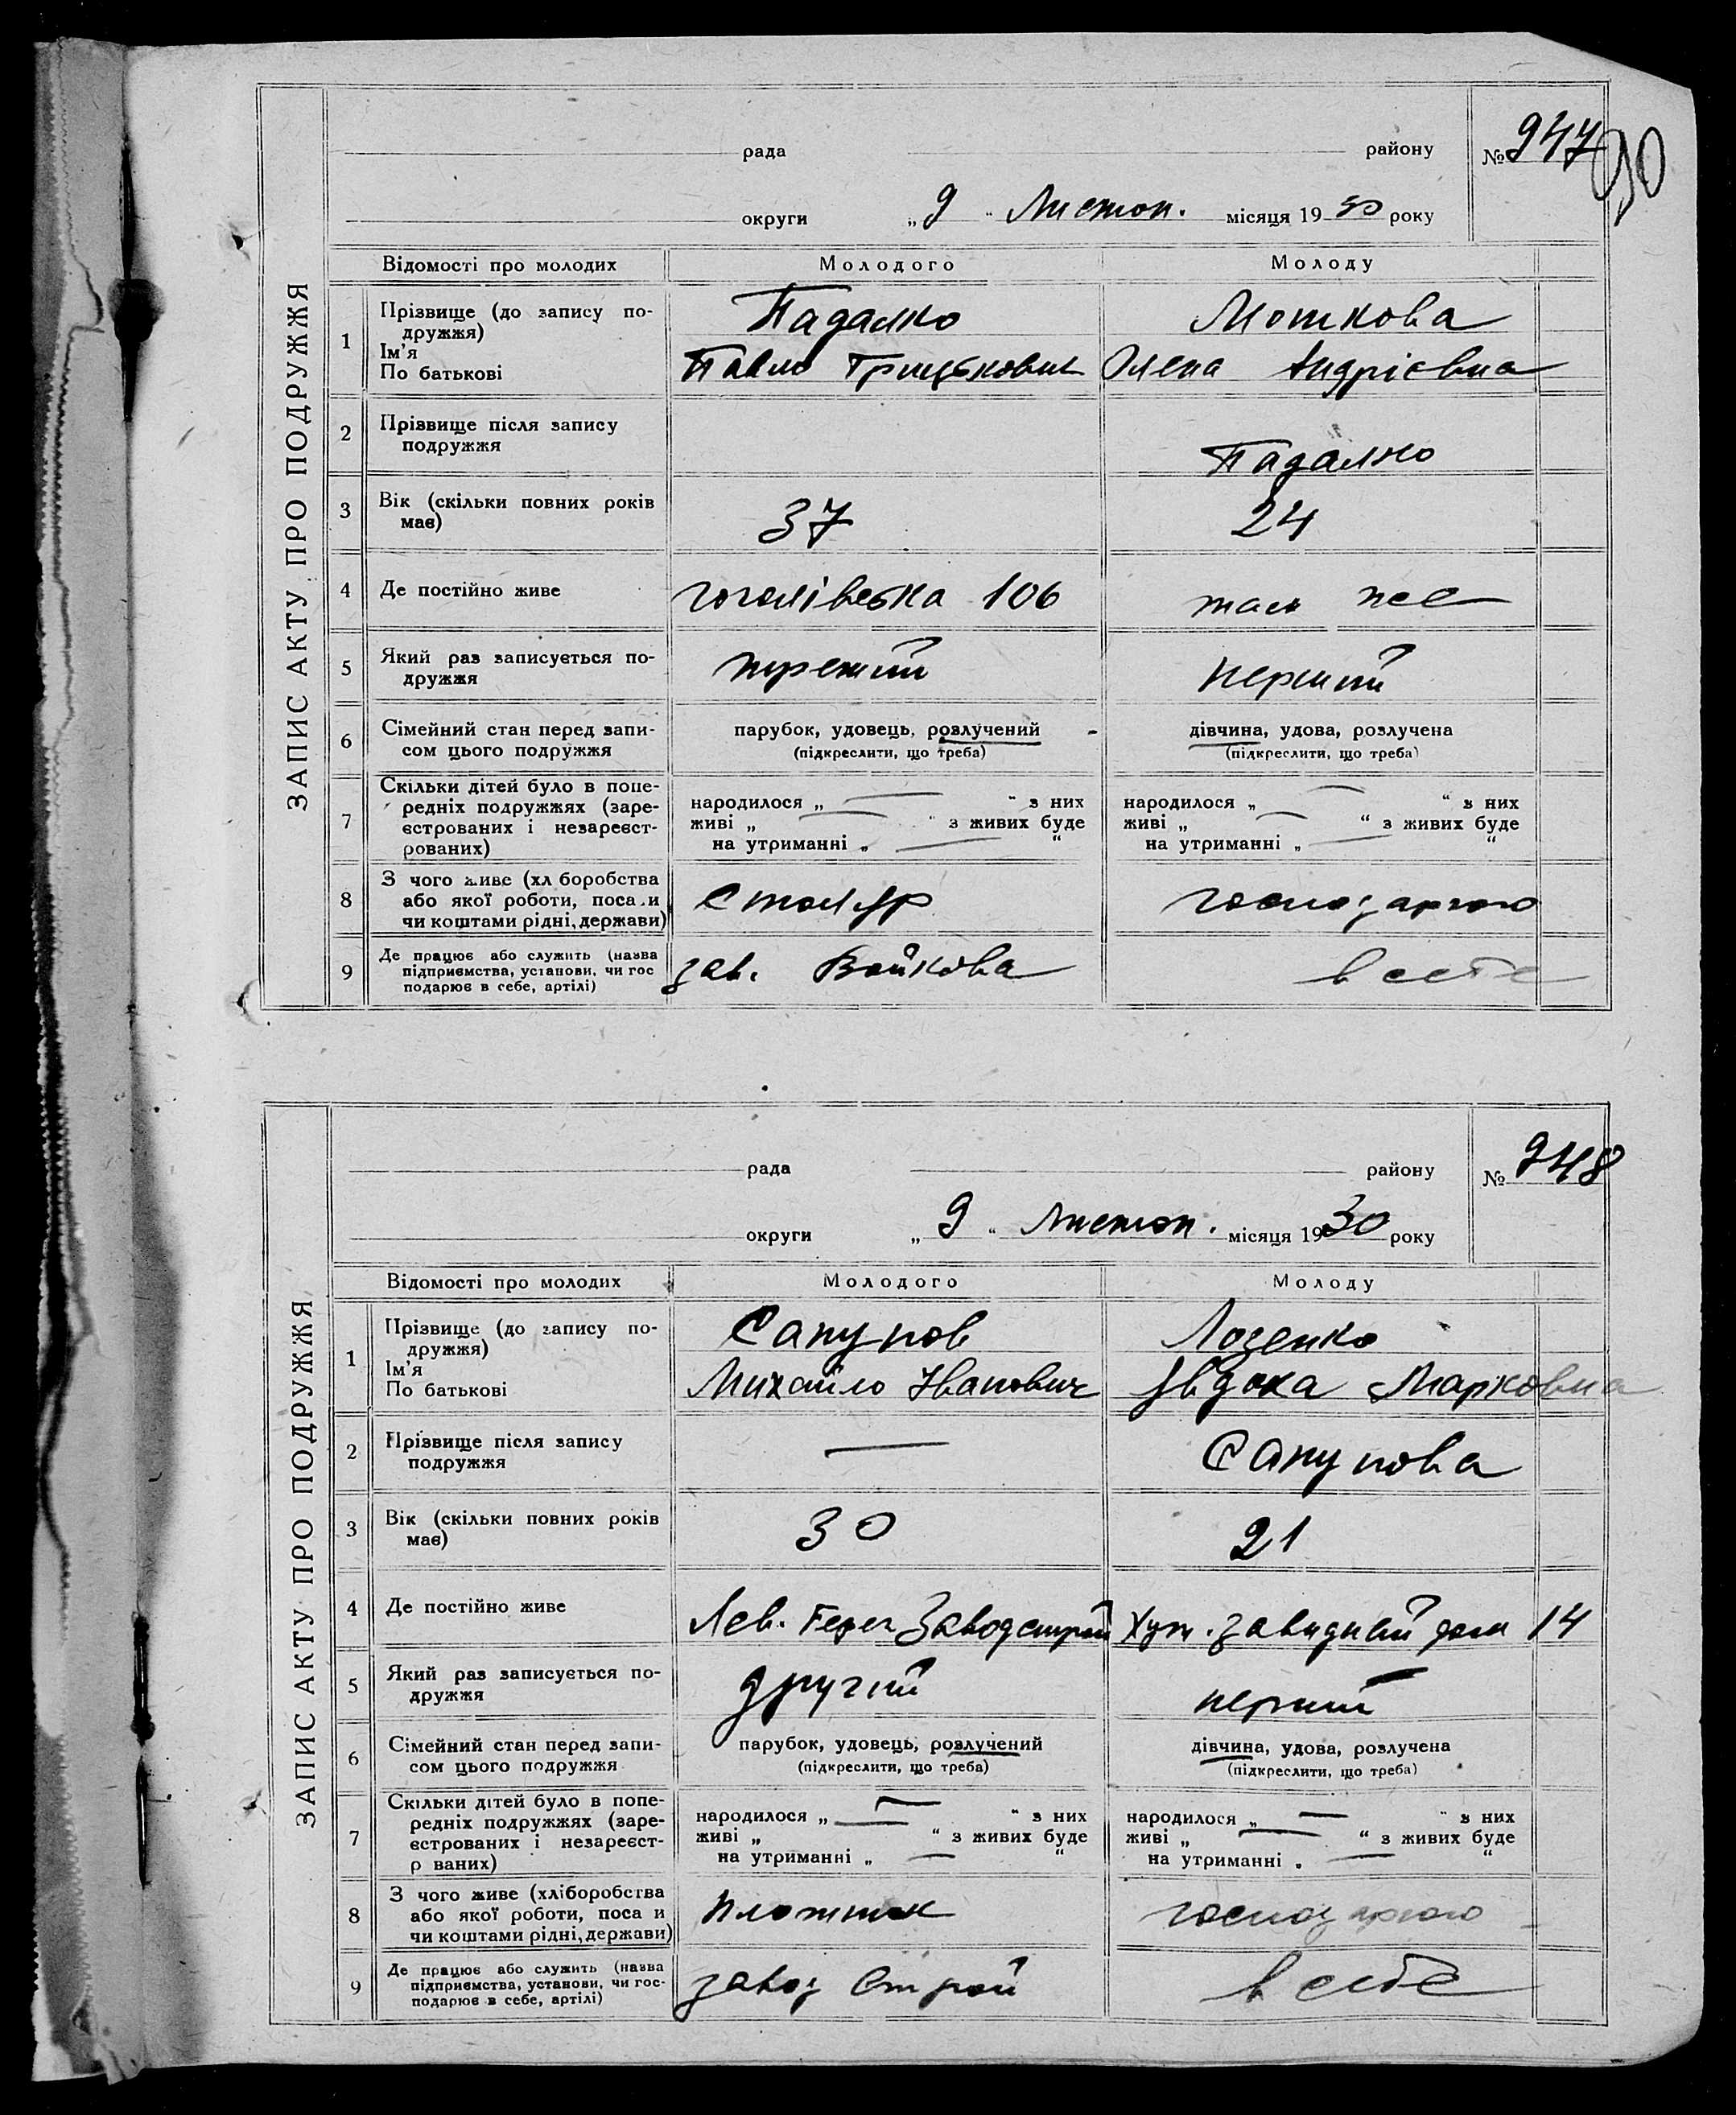 ЗАПИС АКТУ ПРО ПОДРУЖЖЯ
90
рада району № 947
округи „ 9 “ Листоп. місяця 19 30 року
Відомості про молодих Молодого Молоду
1 Прізвище (до запису по-
дружжя) Падалко Моткова
Ім'я
По батькові Павло Грицькович Олена Андрієвна
2 Прізвище після запису
подружжя Падалко
3 Вік (скільки повних років
має) 37 24
4 Де постійно живе Гоголівська 106 там же
5 Який раз записується по-
дружжя третий перший
6 Сімейний стан перед запи- парубок, удовець, розлучений дівчина, удова, розлучена
сом цього подружжя (підкреслити, що треба) (підкреслити, що треба)
7 Скільки дітей було в попе-
редніх подружжях (заре- народилося „ — “ з них народилося „ — “ з них
єстрованих і незареєст- живі „ — “ з живих буде живі „ — “ з живих буде
рованих) на утриманні „ — “ на утриманні „ — “
8 З чого живе (хл боробства
або якої роботи, поса и Столяр господаркою
чи коштами рідні, держави)
9 Де працює або служить (назва
підприємства, установи, чи гос зав. Войкова в себе
подарює в себе, артілі)
ЗАПИС АКТУ ПРО ПОДРУЖЖЯ
рада району № 948
округи „ 9 “ Листоп. місяця 19 30 року
Відомості про молодих Молодого Молоду
1 Прізвище (до запису по-
дружжя) Сапунов Лозенко
Ім'я
По батькові Михайло Иванович Явдоха Марковна
2 Прізвище після запису
подружжя — Сапунова
3 Вік (скільки повних років
має) 30 21
4 Де постійно живе Лев. Берег Заводстрой Хут. дом 14
5 Який раз записується по-
дружжя другий перший
6 Сімейний стан перед запи- парубок, удовець, розлучений дівчина, удова, розлучена
сом цього подружжя (підкреслити, що треба) (підкреслити, що треба)
7 Скільки дітей було в попе-
редніх подружжях (заре- народилося „ — “ з них народилося „ — “ з них
єстрованих і незареєст- живі „ — “ з живих буде живі „ — “ з живих буде
р ваних) на утриманні „ — “ на утриманні „ — “
8 З чого живе (хліборобства
або якої роботи, поса и плотник господаркою
чи коштами рідні, держави)
9 Де працює або служить (назва
підприємства, установи, чи гос- завод Строй в себе
подарює в себе, артілі)